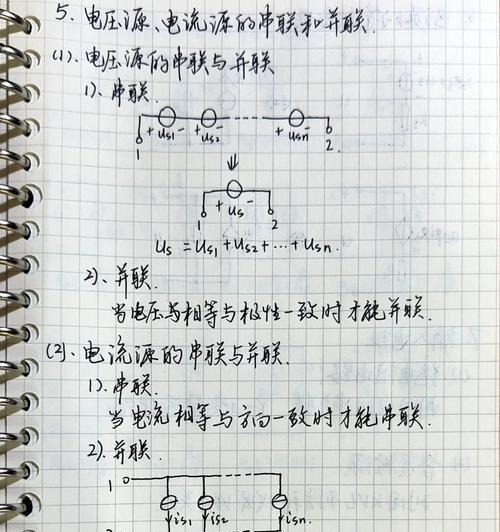 5. 电压源、电流源的串联和并联.
(1). 电压源的串联与并联
1). 串联.
+ us1 - + us2 - + usn -
1 2.
+ us -
1 2
us = us1 + us2 + … + usn.
2). 并联.
当电压与相等与极性一致时才能并联.
(2). 电流源的串联与并联.
1). 串联.
当电流相等与方向一致时才能串联.
2). 并联.
1
is1 is2 isn.